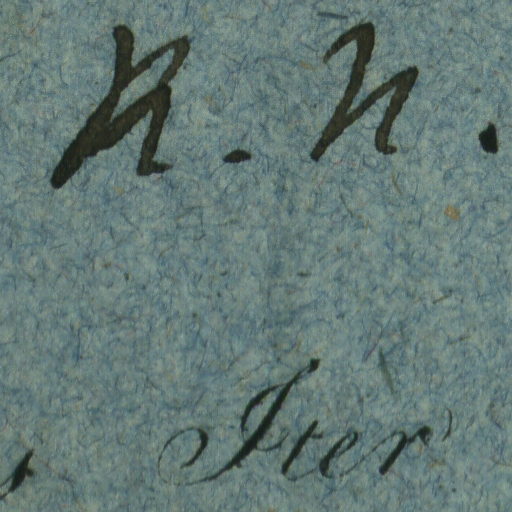 N. N.
s Iter